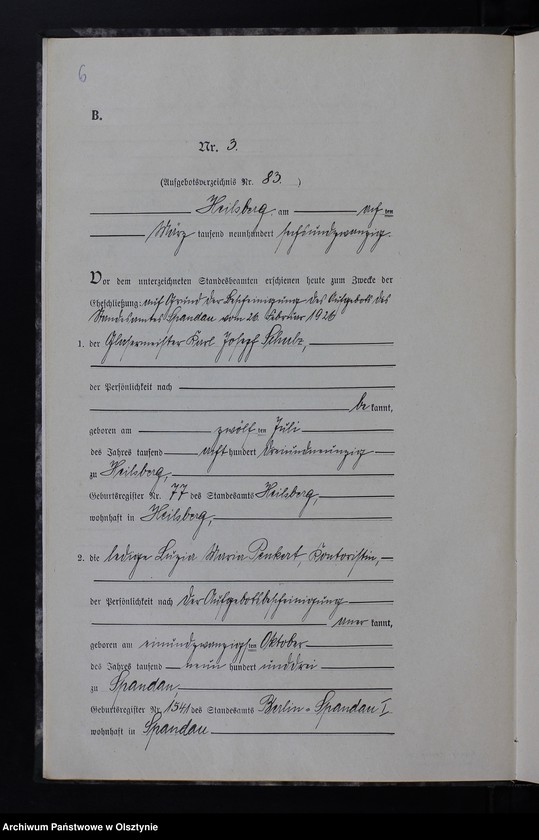 6
B.
Nr. 3.
(Aufgebotsverzeichnis Nr. 83. )
Heilsberg am acht ten
März tausend neunhundert sechsundzwanzig.
Vor dem unterzeichneten Standesbeamten erschienen heute zum Zwecke der
Eheschließung: auf Grund der Bescheinigung des Aufgebots des
Standesamtes Spandau vom 26. Februar 1926
1. der Glasermeister Karl Josef Schulz,
der Persönlichkeit nach
be kannt,
geboren am zwölf ten Juli
des Jahres tausend acht hundert dreiundneunzig
zu Heilsberg,
Geburtsregister Nr. 77 des Standesamts Heilsberg,
wohnhaft in Heilsberg,
2. die ledige Luzia Maria Penkert, Kontoristin,
der Persönlichkeit nach der Aufgebotsbescheinigung
aner kannt,
geboren am einundzwanzigs ten Oktober
des Jahres tausend neun hundert unddrei
zu Spandau,
Geburtsregister Nr. 1541 des Standesamts Berlin-Spandau I.
wohnhaft in Spandau
Archiwum Państwowe w Olsztynie